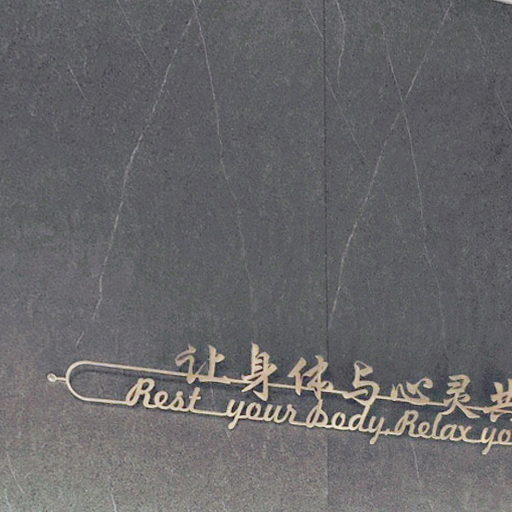 让身体与心灵共
Rest your Body, Relax yo